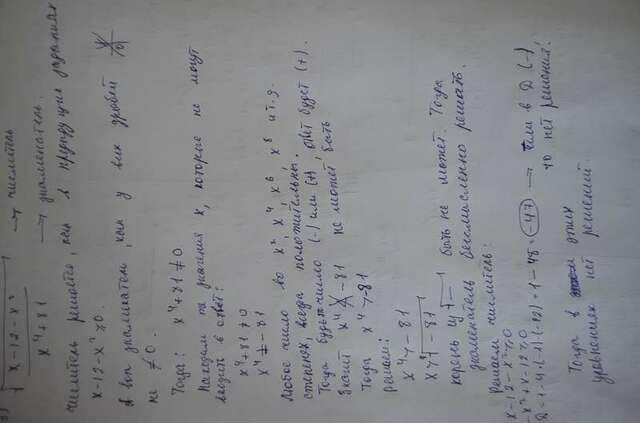 3) √(x-12-x²) → числитель
x⁴+81 → знаменатель.
числитель решается, как в предыдущих заданиях
x-12-x² ≥ 0.
А вот знаменатель, как у всех дробей
не ≠ 0.
Тогда: x⁴+81 ≠ 0
Находим те значения x, которые не могут
входить в ответ:
x⁴+81 ≠ 0
x⁴ ≠ -81
Любое число во x², x⁴, x⁶, x⁸ и т.д.
степенях всегда положительны.
Тогда будь число (-) или (+), ответ будет (+).
Значит x⁴ -81 не может быть
Тогда x⁴ > -81
Решаем:
x⁴ > -81
x > ⁴√-81
корень ⁴√- быть не может. Тогда
знаменатель бессмысленно решать.
Решаем числитель:
x-12-x² ≥ 0
-x²+x-12 ≥ 0
D = 1-4·(-1)·(-12) = 1-48 = -47 → если в D (-)
то нет решения.
Тогда в этих
уравнениях нет решений.